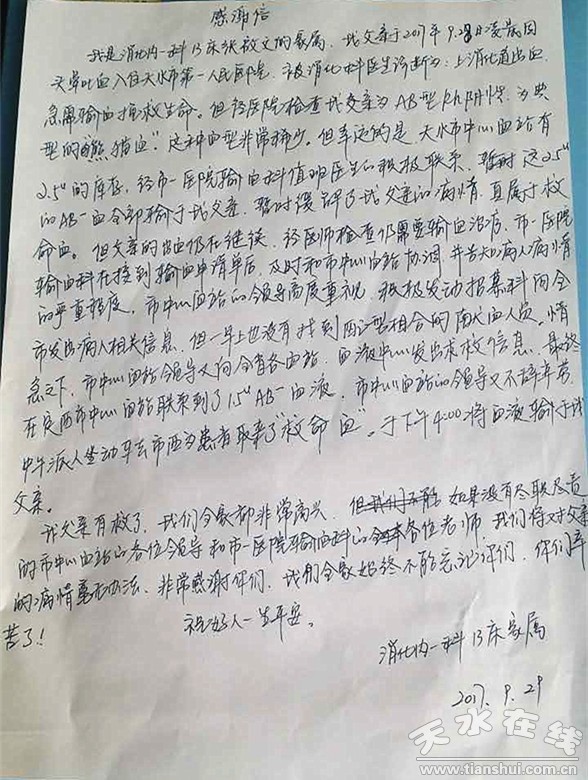 感谢信
我是消化内一科13床张教文的家属，我父亲于2017年9.28日凌晨因
头晕吐血入住天水市第一人民医院，被消化科医生诊断为：上消化道出血，
急需输血抢救生命。但经医院检查我父亲为AB型Rh阴性，为典
型的"熊猫血"这种血型非常稀少。但幸运的是，天水市中心血站有
2.5u的库存，经市一医院输血科值班医生的积极联系，暂时这2.5u
的AB-血全部输于我父亲，暂时缓解了我父亲的病情，真属于救
命血。但父亲的出血仍在继续，经医师检查仍需要输血治疗，市一医院
输血科在接到输血申请单后，及时和市中心血站协调，并告知病人病情
的严重程度，市中心血站的领导高度重视，积极发动招募科向全
市发出病人相关信息，但一早上也没有找到血型相合的献血人员。情
急之下，市中心血站领导又向全省各血站，血液中心发出求救信息，最终
在定西市中心血站联系到了1.5u AB-血液，市中心血站的领导又不辞辛劳，
中午派人坐动车去定西为患者取来了"救命血"。于下午4:00将血液输于我
父亲。
我父亲有救了，我们全家都非常高兴，但我们不能如果没有尽职尽责
的市中心血站的各位领导和市一医院输血科的各位老师，我们将对父亲
的病情毫无办法，非常感谢你们，我们全家始终不能忘记你们，你们辛
苦了！
祝好人一生平安。
消化内一科13床家属
2017.9.29
天水在线
www.tianshui.com.cn